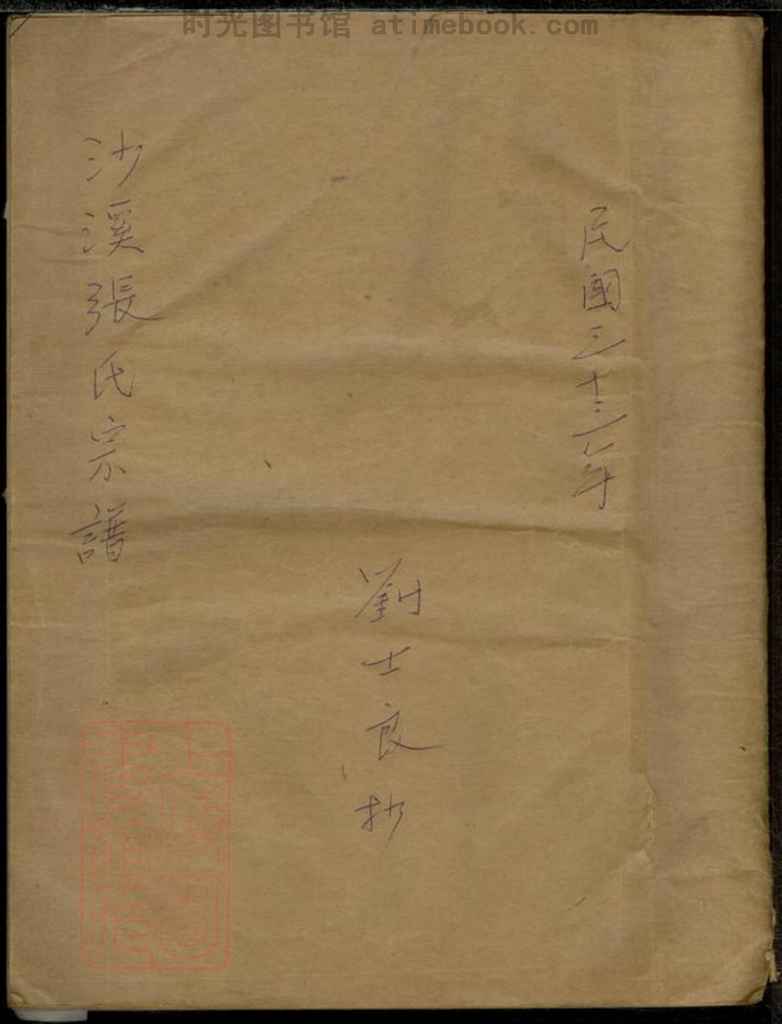 时光图书馆 atimebook.com
民國三十三年
劉士良抄
沙溪張氏宗譜